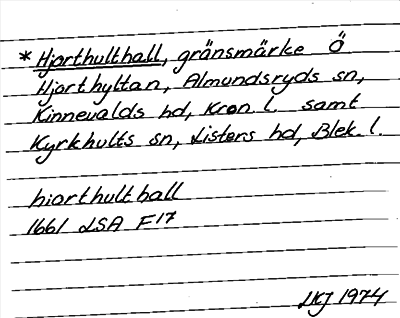 * Hjorthulthall, gränsmärke Ö
Hjorthyltan, Almundsryds sn,
Kinnevalds hd, Kron. l. samt
Kyrkhults sn, Listers hd, Blek. l.
hiorthulthall
1661 LSA F17
LKJ 1974